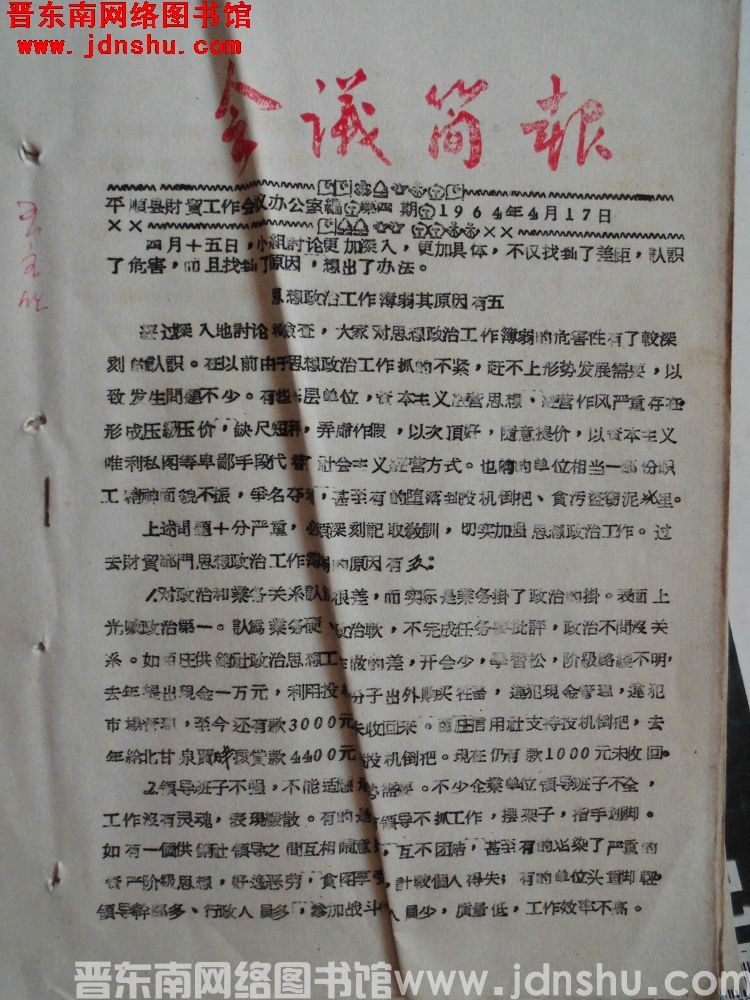 晋东南网络图书馆
www.jdnshu.com
会议简报
平顺县財貿工作会议办公室編 第四期 1964年4月17日
四月十五日，小組討论更加深入，更加具体，不仅找到了差距，认識
了危害，而且找到了原因，想出了办法。
思想政治工作薄弱其原因有五
經过深入地討论検查，大家对思想政治工作薄弱的危害性有了較深
刻的认識。在以前由于思想政治工作抓的不紧，赶不上形势发展需要，以
致发生問題不少。有些基层单位，資本主义經营思想、經营作风严重存在
形成压級压价，缺尺短秤，弄虛作假，以次頂好，随意提价，以資本主义
唯利私图等卑鄙手段代替了社会主义經营方式。也有的单位相当一部份职
工精神面貌不振，爭名夺利，甚至有的堕落到投机倒把、貪污盜窃泥坑里。
上述問題十分严重，必須深刻記取教訓，切实加強思想政治工作。过
去財貿部門思想政治工作薄弱的原因有五：
1.对政治和業务关系认識很差，而实际是業务掛了政治的掛。表面上
光喊政治第一。认為業务硬、政治軟，不完成任务要批評，政治不問沒关
系。如 庄供銷社政治思想工作做的差，开会少，學習松，阶級路綫不明，
去年提出現金一万元，利用投机分子出外購买牲畜，違犯現金管理，違犯
市場管理，至今还有款3000元未收回来。 庄信用社支持投机倒把，去
年給北甘泉買 貸款4400元投机倒把。現在仍有款1000元未收回。
2.領导班子不強，不能适應形势需要。不少企業单位領导班子不全，
工作沒有灵魂，表現緩散。有的是領导不抓工作，摆架子，指手划脚。
如有一個供銷社領导之間互相 意見，互不团結，甚至有的沾染了严重的
資产阶級思想，好逸恶劳，貪图享受，計較個人得失；有的单位头重脚輕
領导幹部多、行政人員多，參加战斗人員少，质量低，工作效率不高。
晋东南网络图书馆www.jdnshu.com